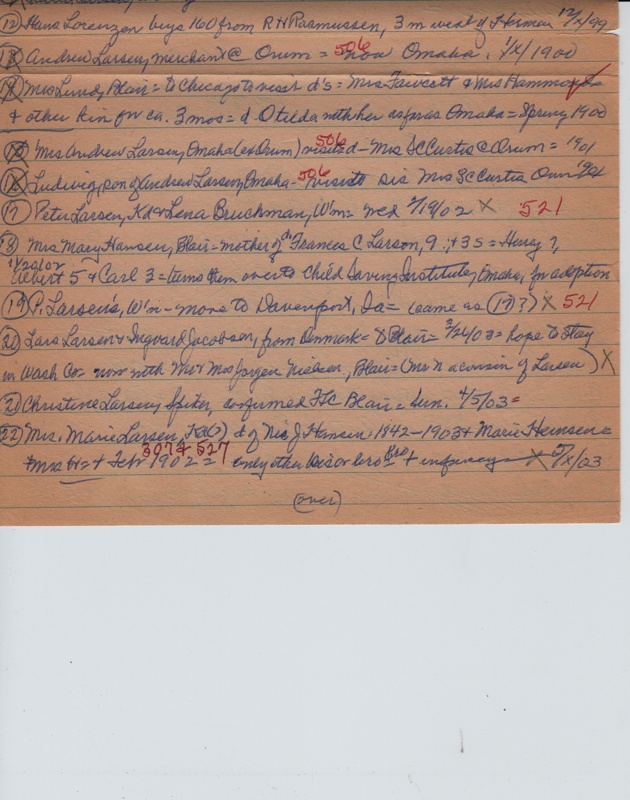 (12) Hans Lorenzen buys 160 from R H Rasmussen, 3 m west of Herman 12/x/99
(13) Andrew Larsen, merchant @ Orum = 506 now Omaha. 1/x/1900
(14) Mrs Lundy, Blair = to Chicago to visit d's = Mrs Fawcett & Mrs Hammo
& other kin for ca. 3 mos = d Otilda with her as far as Omaha = Spring 1900
(15) Mrs Andrew Larsen, Omaha (ex Orum) 506 visits d - Mrs SC Curtis @ Orum = 1901
(16) Ludwig, son of Andrew Larsen, Omaha - 506 visits sis Mrs SC Curtis Orum
(17) Peter Larsen, Kd & Lena Bruchman, W'm = wed 2/19/02 X 521
(18) Mrs Mary Hansen, Blair = mother of Frances C Larson, 9 & 3 s = Henry 7,
11/20/02 5 & Carl 3 = turns them over to Child Saving Institute, Omaha, for adoption
(19) P. Larsen's, W'n - move to Davenport, Ia = (same as (17) ?) X 521
(20) Lars Larsen & Ingvard Jacobsen, from Denmark = & Blair = 3/26/03 = hope to stay
in Wash Co = now with Mr & Mrs Jorgen Nielsen, Blair = (Mr N a cousin of Larsen) X
(21) Christine Larsen, Spiker, confirmed FLC Blair = Sun. 4/5/03 =
(22) Mrs. Marie Larsen, Kd (?) d of Nis J Hansen: 1842-1903 & Marie Heinsen =
307 & 527
Mrs H = + Febr 1902 = only other sis or bro + infancy X 5/x/03
(over)